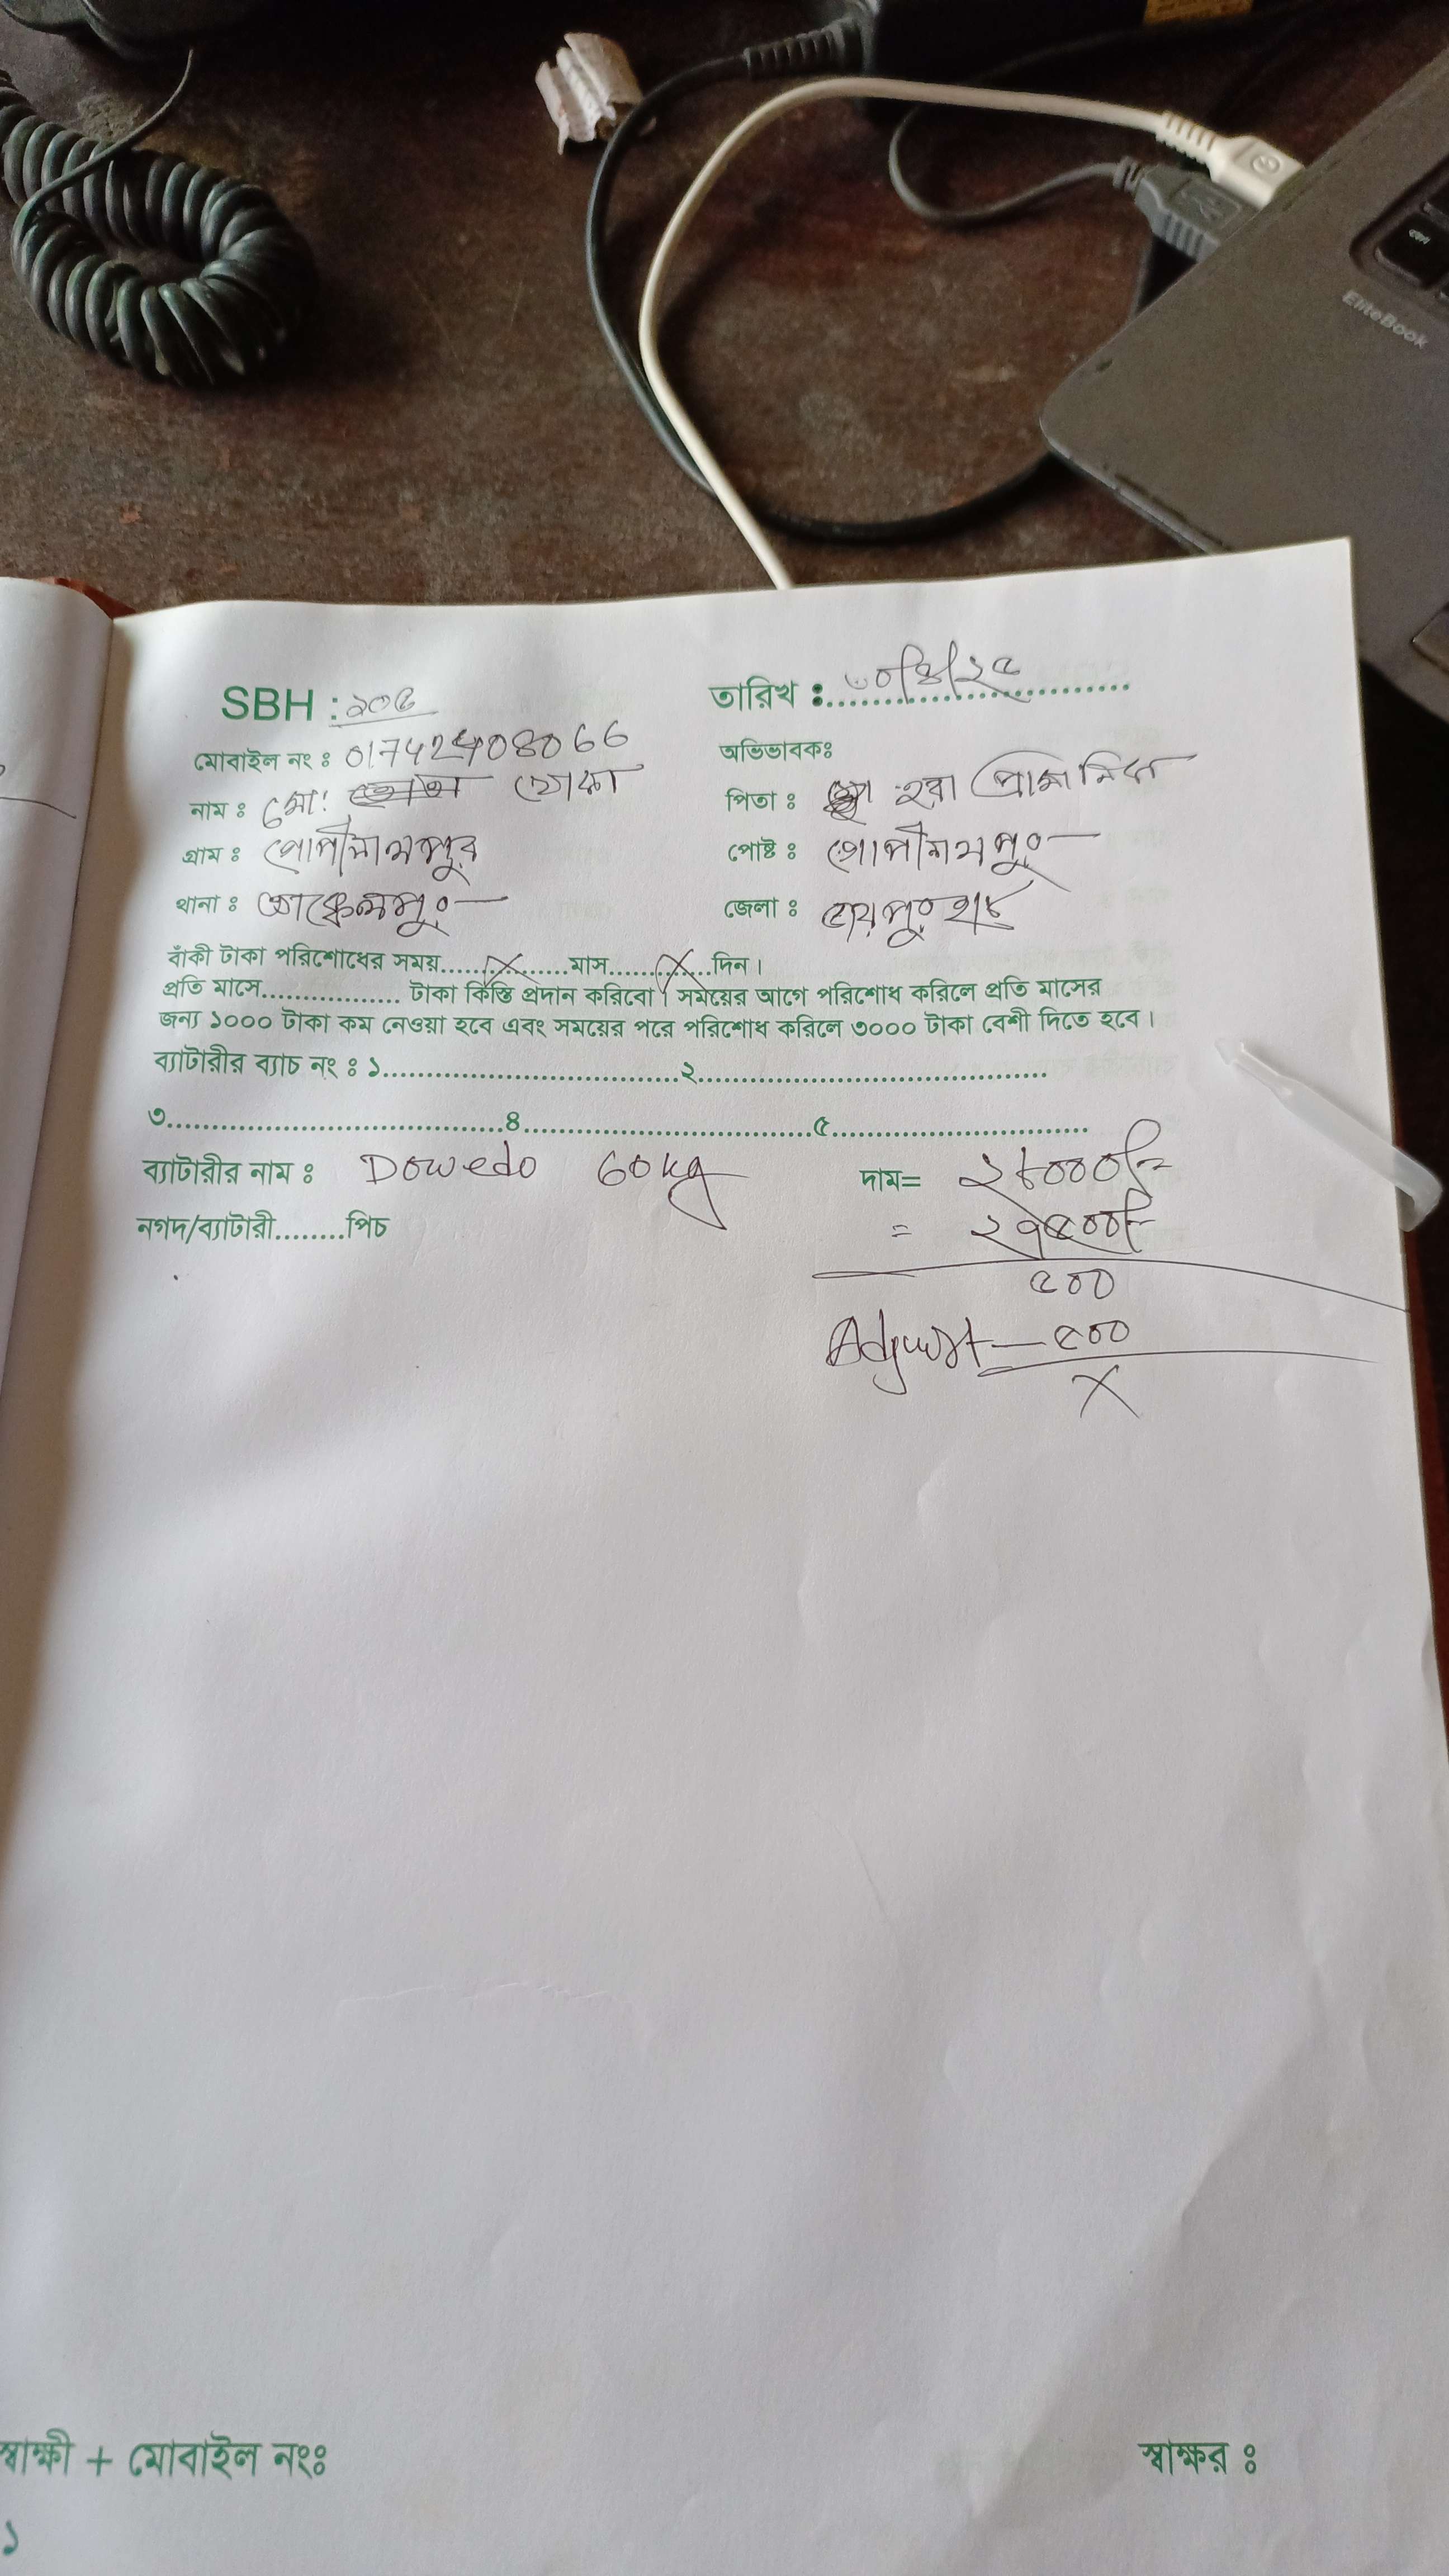 SBH : ২০৫
তারিখ :
মোবাইল নং ঃ
অভিভাবকঃ
নাম ঃ মো: তোকা
পিতা ঃ হবা প্রামানিক
গ্রাম ঃ গোপীনাথপুর
পোষ্ট ঃ গোপীনাথপুর
থানা ঃ আক্কেলপুর
জেলা ঃ জয়পুরহাট
বাঁকী টাকা পরিশোধের সময়......X......মাস......X...দিন।
প্রতি মাসে................ টাকা কিস্তি প্রদান করিবো। সময়ের আগে পরিশোধ করিলে প্রতি মাসের
জন্য ১০০০ টাকা কম নেওয়া হবে এবং সময়ের পরে পরিশোধ করিলে ৩০০০ টাকা বেশী দিতে হবে।
ব্যাটারীর ব্যাচ নং ঃ ১..................................২........................................
৩......................................৪................................৫.............................
ব্যাটারীর নাম ঃ Dowedo 60kg দাম= ২৮০০০/-
নগদ/ব্যাটারী........পিচ = ২৭৫০০/-
৫০০
Adjust — ৫০০
X
স্বাক্ষী + মোবাইল নংঃ
স্বাক্ষর ঃ
১
EliteBook